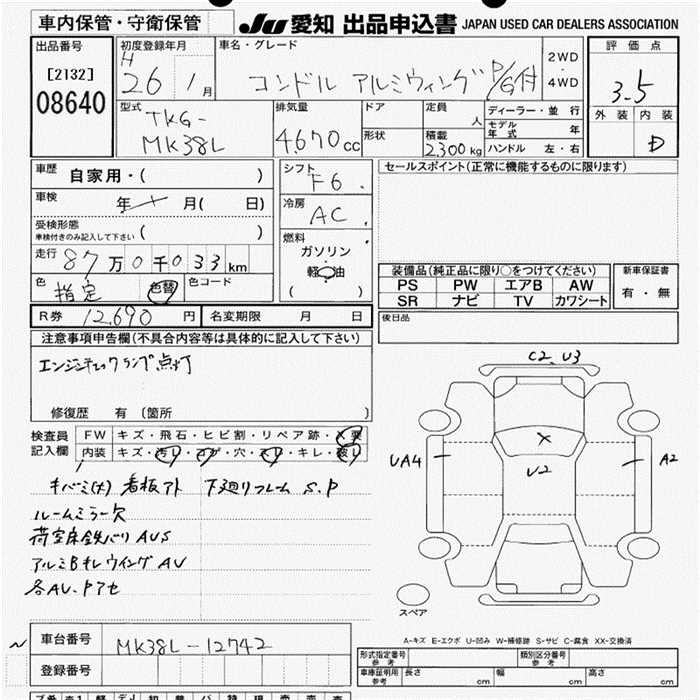 車内保管・守衛保管
JU 愛知 出品申込書 JAPAN USED CAR DEALERS ASSOCIATION
出品番号
[2132]
08640
初度登録年月
H 26 1月
車名・グレード
コンドル アルミウィング P/G付
2WD
・
4WD
評価点
3.5
外装 内装
D
型式
TKG-
MK38L
排気量
4,670 cc
ドア
形状
定員
人
積載
2,300 kg
ディーラー・並行
モデル年式 年
ハンドル 左・右
車歴 自家用・( )
車検 年 月( 日)
受検形態
車検付きのみ記入して下さい ( )
走行 87万0千033km
色 指定 色替 色コード
シフト
F6
冷房
AC
燃料
ガソリン
軽油
( )
セールスポイント(正常に機能するものに限ります)
装備品(純正品に限り〇をつけてください)
PS PW エアB AW
SR ナビ TV カワシート
新車保証書
有・無
R券 12,690 円 名変期限 月 日
後日品
注意事項申告欄(不具合内容等は具体的に記入して下さい)
エンジンチェックランプ点灯
修復歴 有 〔箇所 〕
検査員
記入欄
FW キズ・飛石・ヒビ割・リペア跡・×要
内装 キズ・汚レ・コゲ・穴・スレ・キレ・破レ
キバミ(大) 看板アト 下廻りフレーム S.P
ルームミラー欠
荷室床鉄バリ AUS
アルミBキレ ウイング AU
各AU.Pアセ
C2 U3
UA4
U2
A2
スペア
A-キズ E-エクボ U-凹み W-補修跡 S-サビ C-腐食 XX-交換済
車台番号 MK38L-12742
登録番号
形式指定番号
参考
類別区分番号
参考
車庫証明用
参考
長さ cm 幅 cm 高さ cm